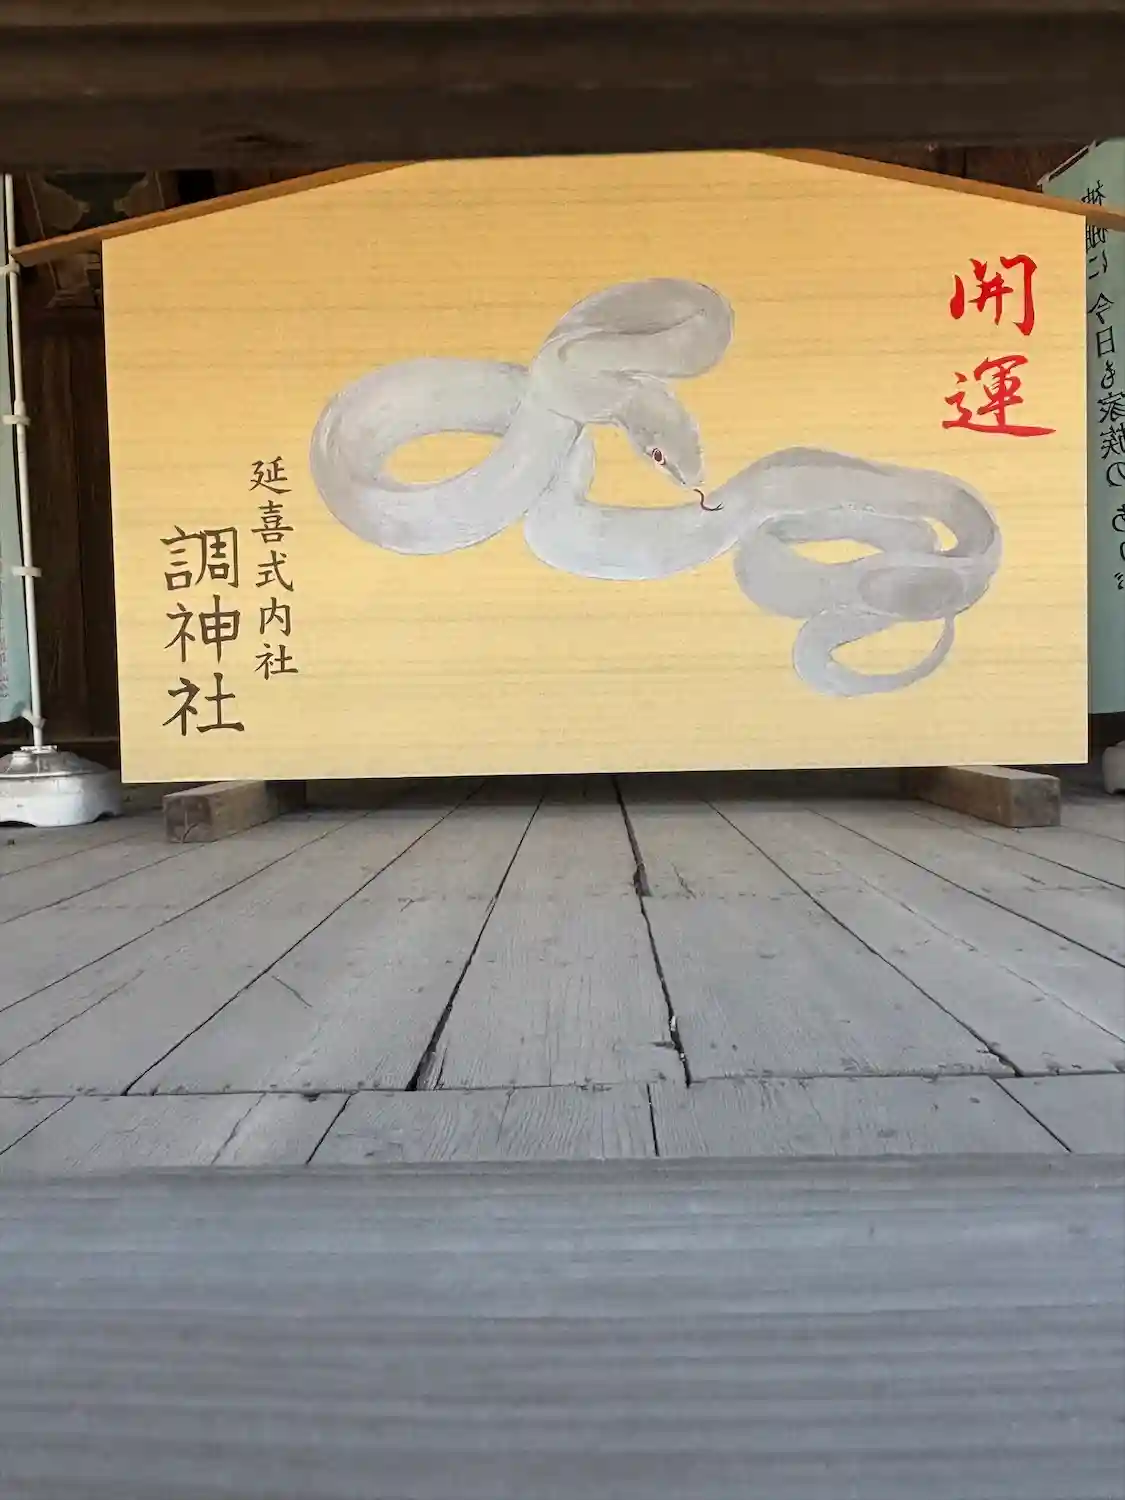 開運
延喜式内社
調神社
神棚に 今日も家族の